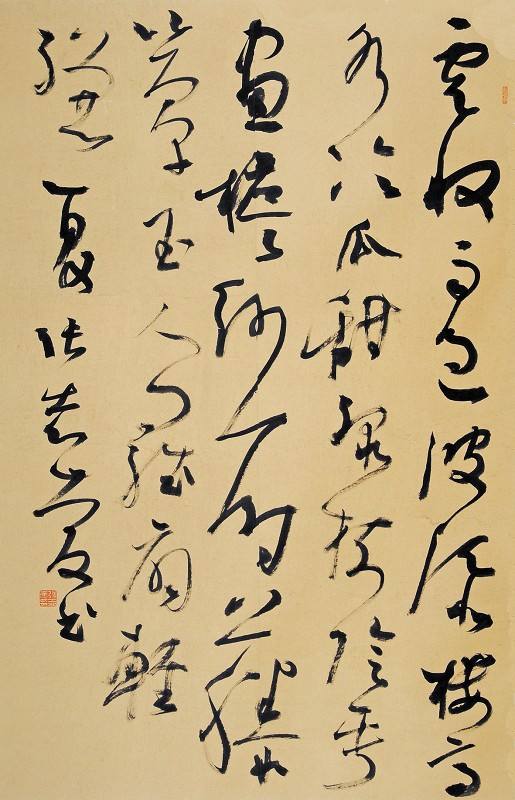 雲收雨過波添樓高
水冷瓜甜綠樹陰垂
畫檐紗廚藤
簟玉人羅扇輕
縑 夏 张 书